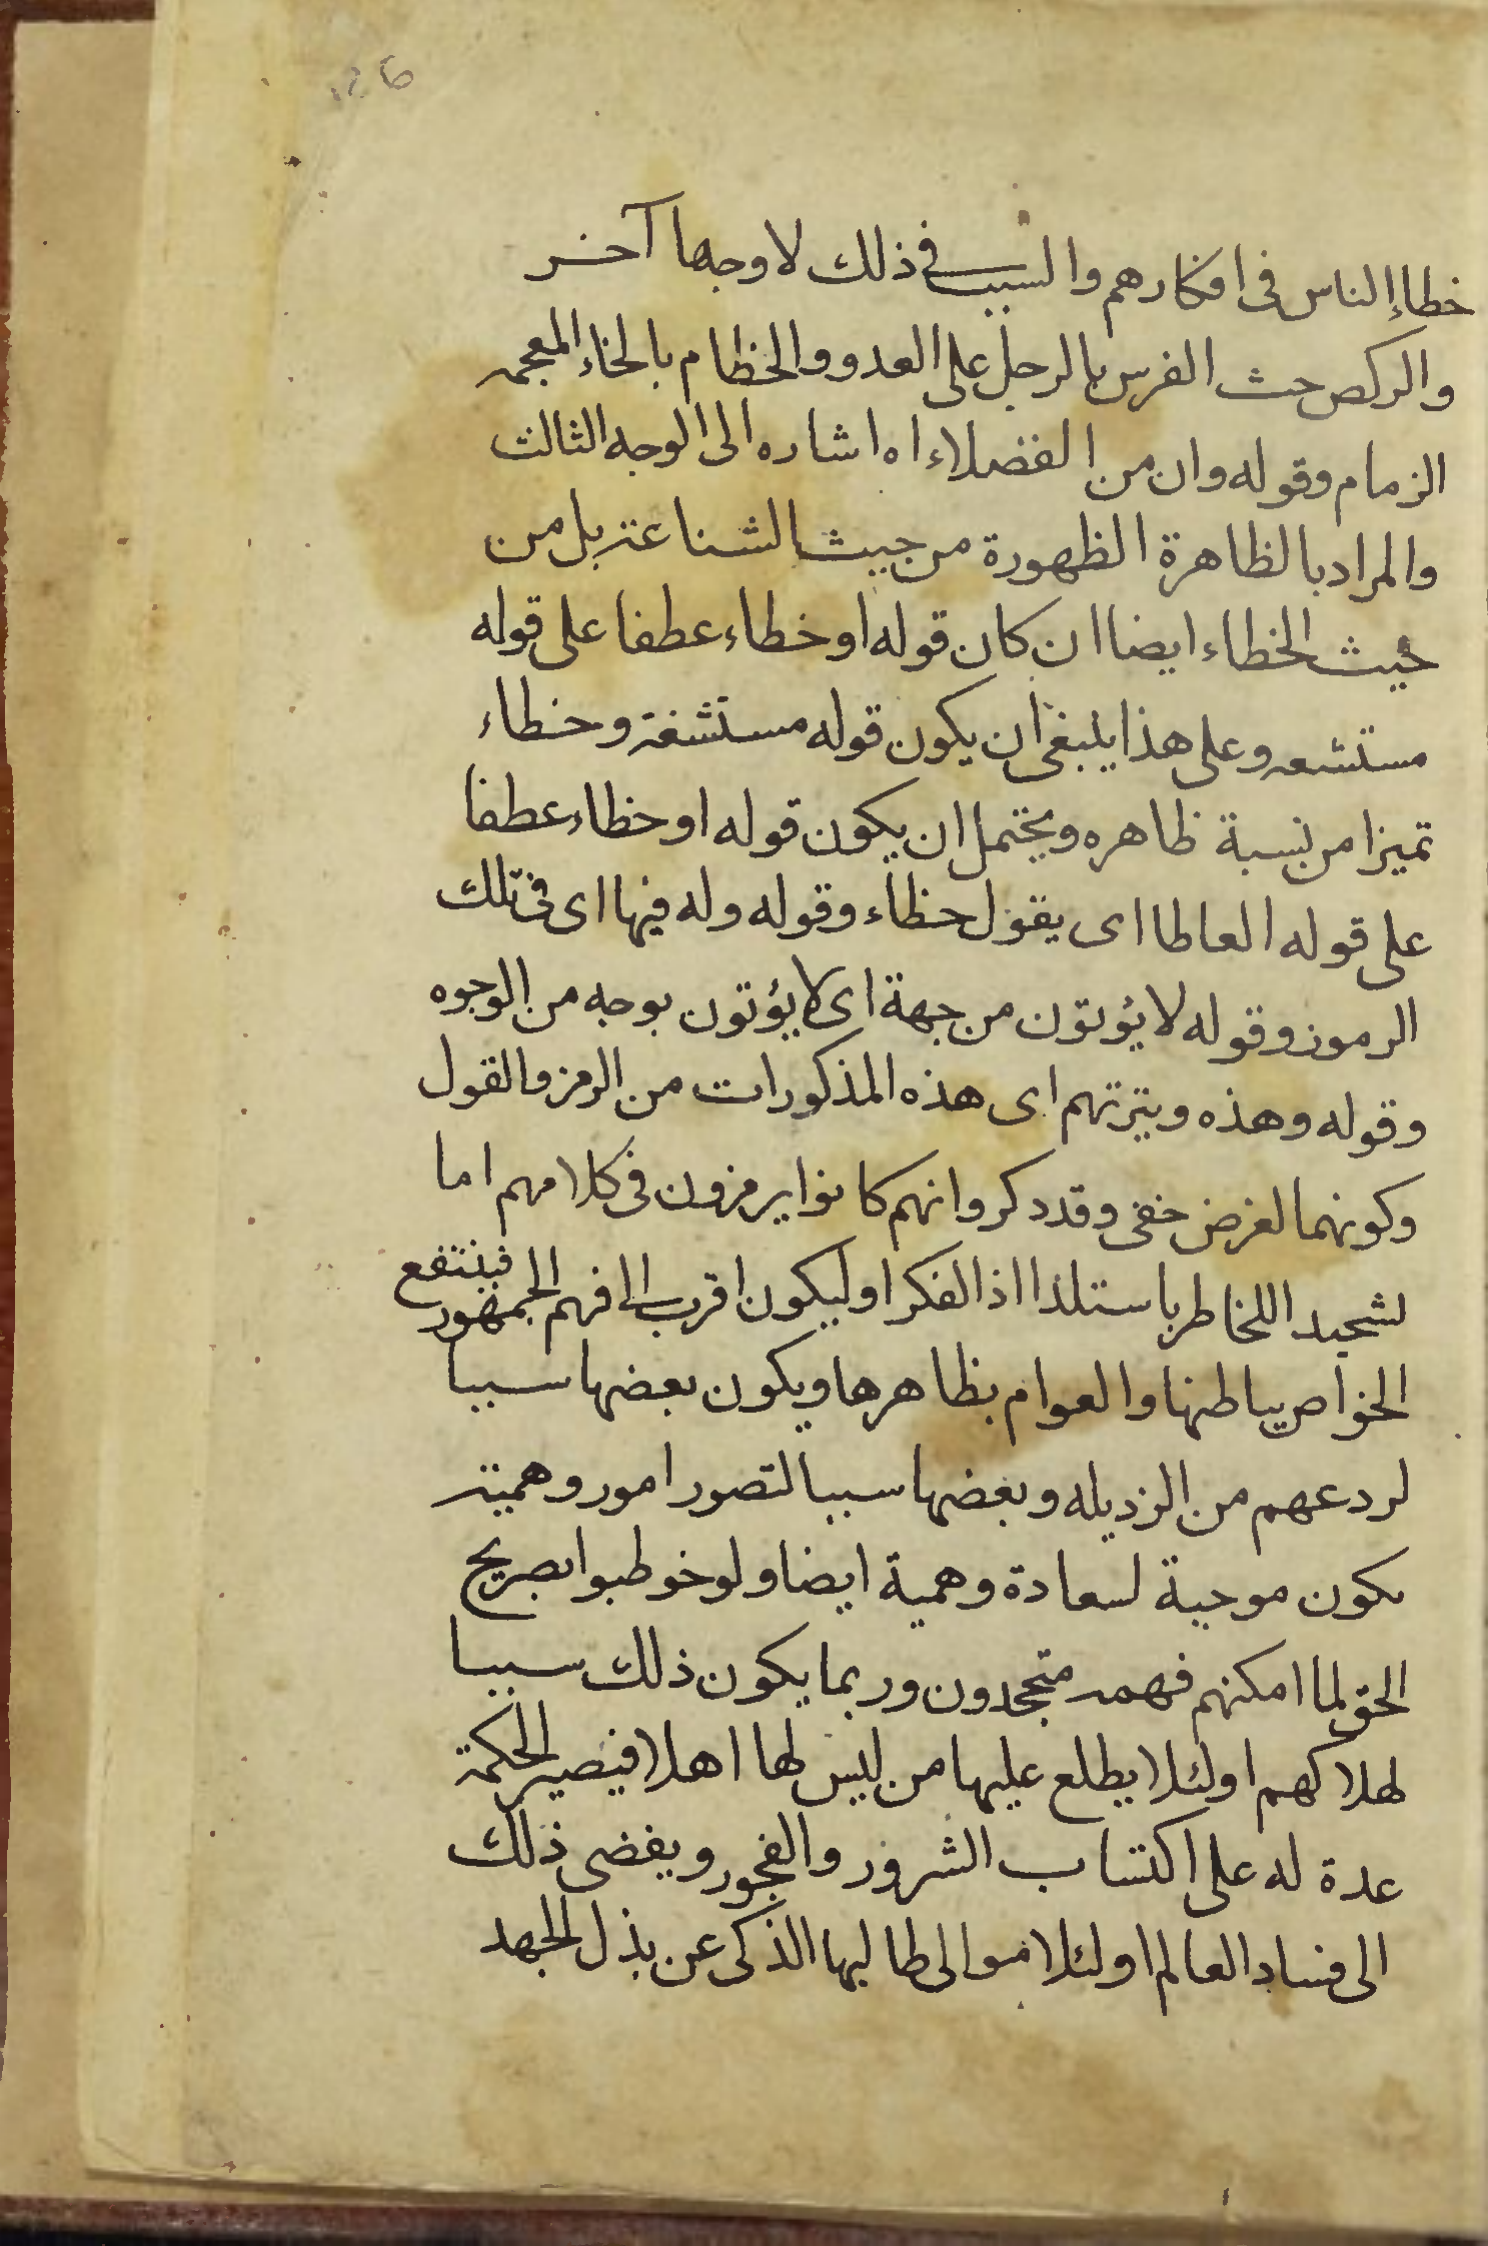 خطاءالناس فى افكارهم والسبب فى ذلك لا وجها آخر
والركض حث الفرس بالرجل على العدو والخطام بالخاء المعجمه
الزمام وقوله وان من الفضلاء اه اشاره الى الوجه الثالث
والمراد بالظاهرة الظهورة من حيث الشناعة بل من
حيث الخطاء ايضا ان كان قوله او خطاء عطفا على قوله
مستشعه وعلى هذا ينبغى ان يكون قوله مستشغة وخطاء
تميزا من نسبة ظاهره ويحتمل ان يكون قوله او خطاء عطفا
على قوله العاطا اى يقول خطاء وقوله وله فيها اى فى تلك
الرموز وقوله لا يؤتون من جهة اى لا يؤتون بوجه من الوجوه
وقوله وهذه وتيرتهم اى هذه المذكورات من الرمز والقول
وكونهما لغرض خفى وقد ذكروا انهم كانوا يرمزون فى كلامهم اما
لشحيد اللخاطر باستلذااذ الفكر او ليكون اقرب الى فهم الجمهور فينتفع
الخواص بباطنها والعوام بظاهرها ويكون بعضها سببا
لردعهم من الرذيله وبعضها سببا لتصور امور وهمية
يكون موجبة لسعادة وهمية ايضا ولو خوطبوا بصريح
الحق لما امكنهم فهمه متجحدون وربما يكون ذلك سببا
لهلاكهم اولئلا يطلع عليها من ليس لها اهلا فيصير الحكمة
عدة له على اكتساب الشرور والفجور ويفضى ذلك
الى فساد العالم اولئلا الى طالبها الذكى عن بذل الجهد